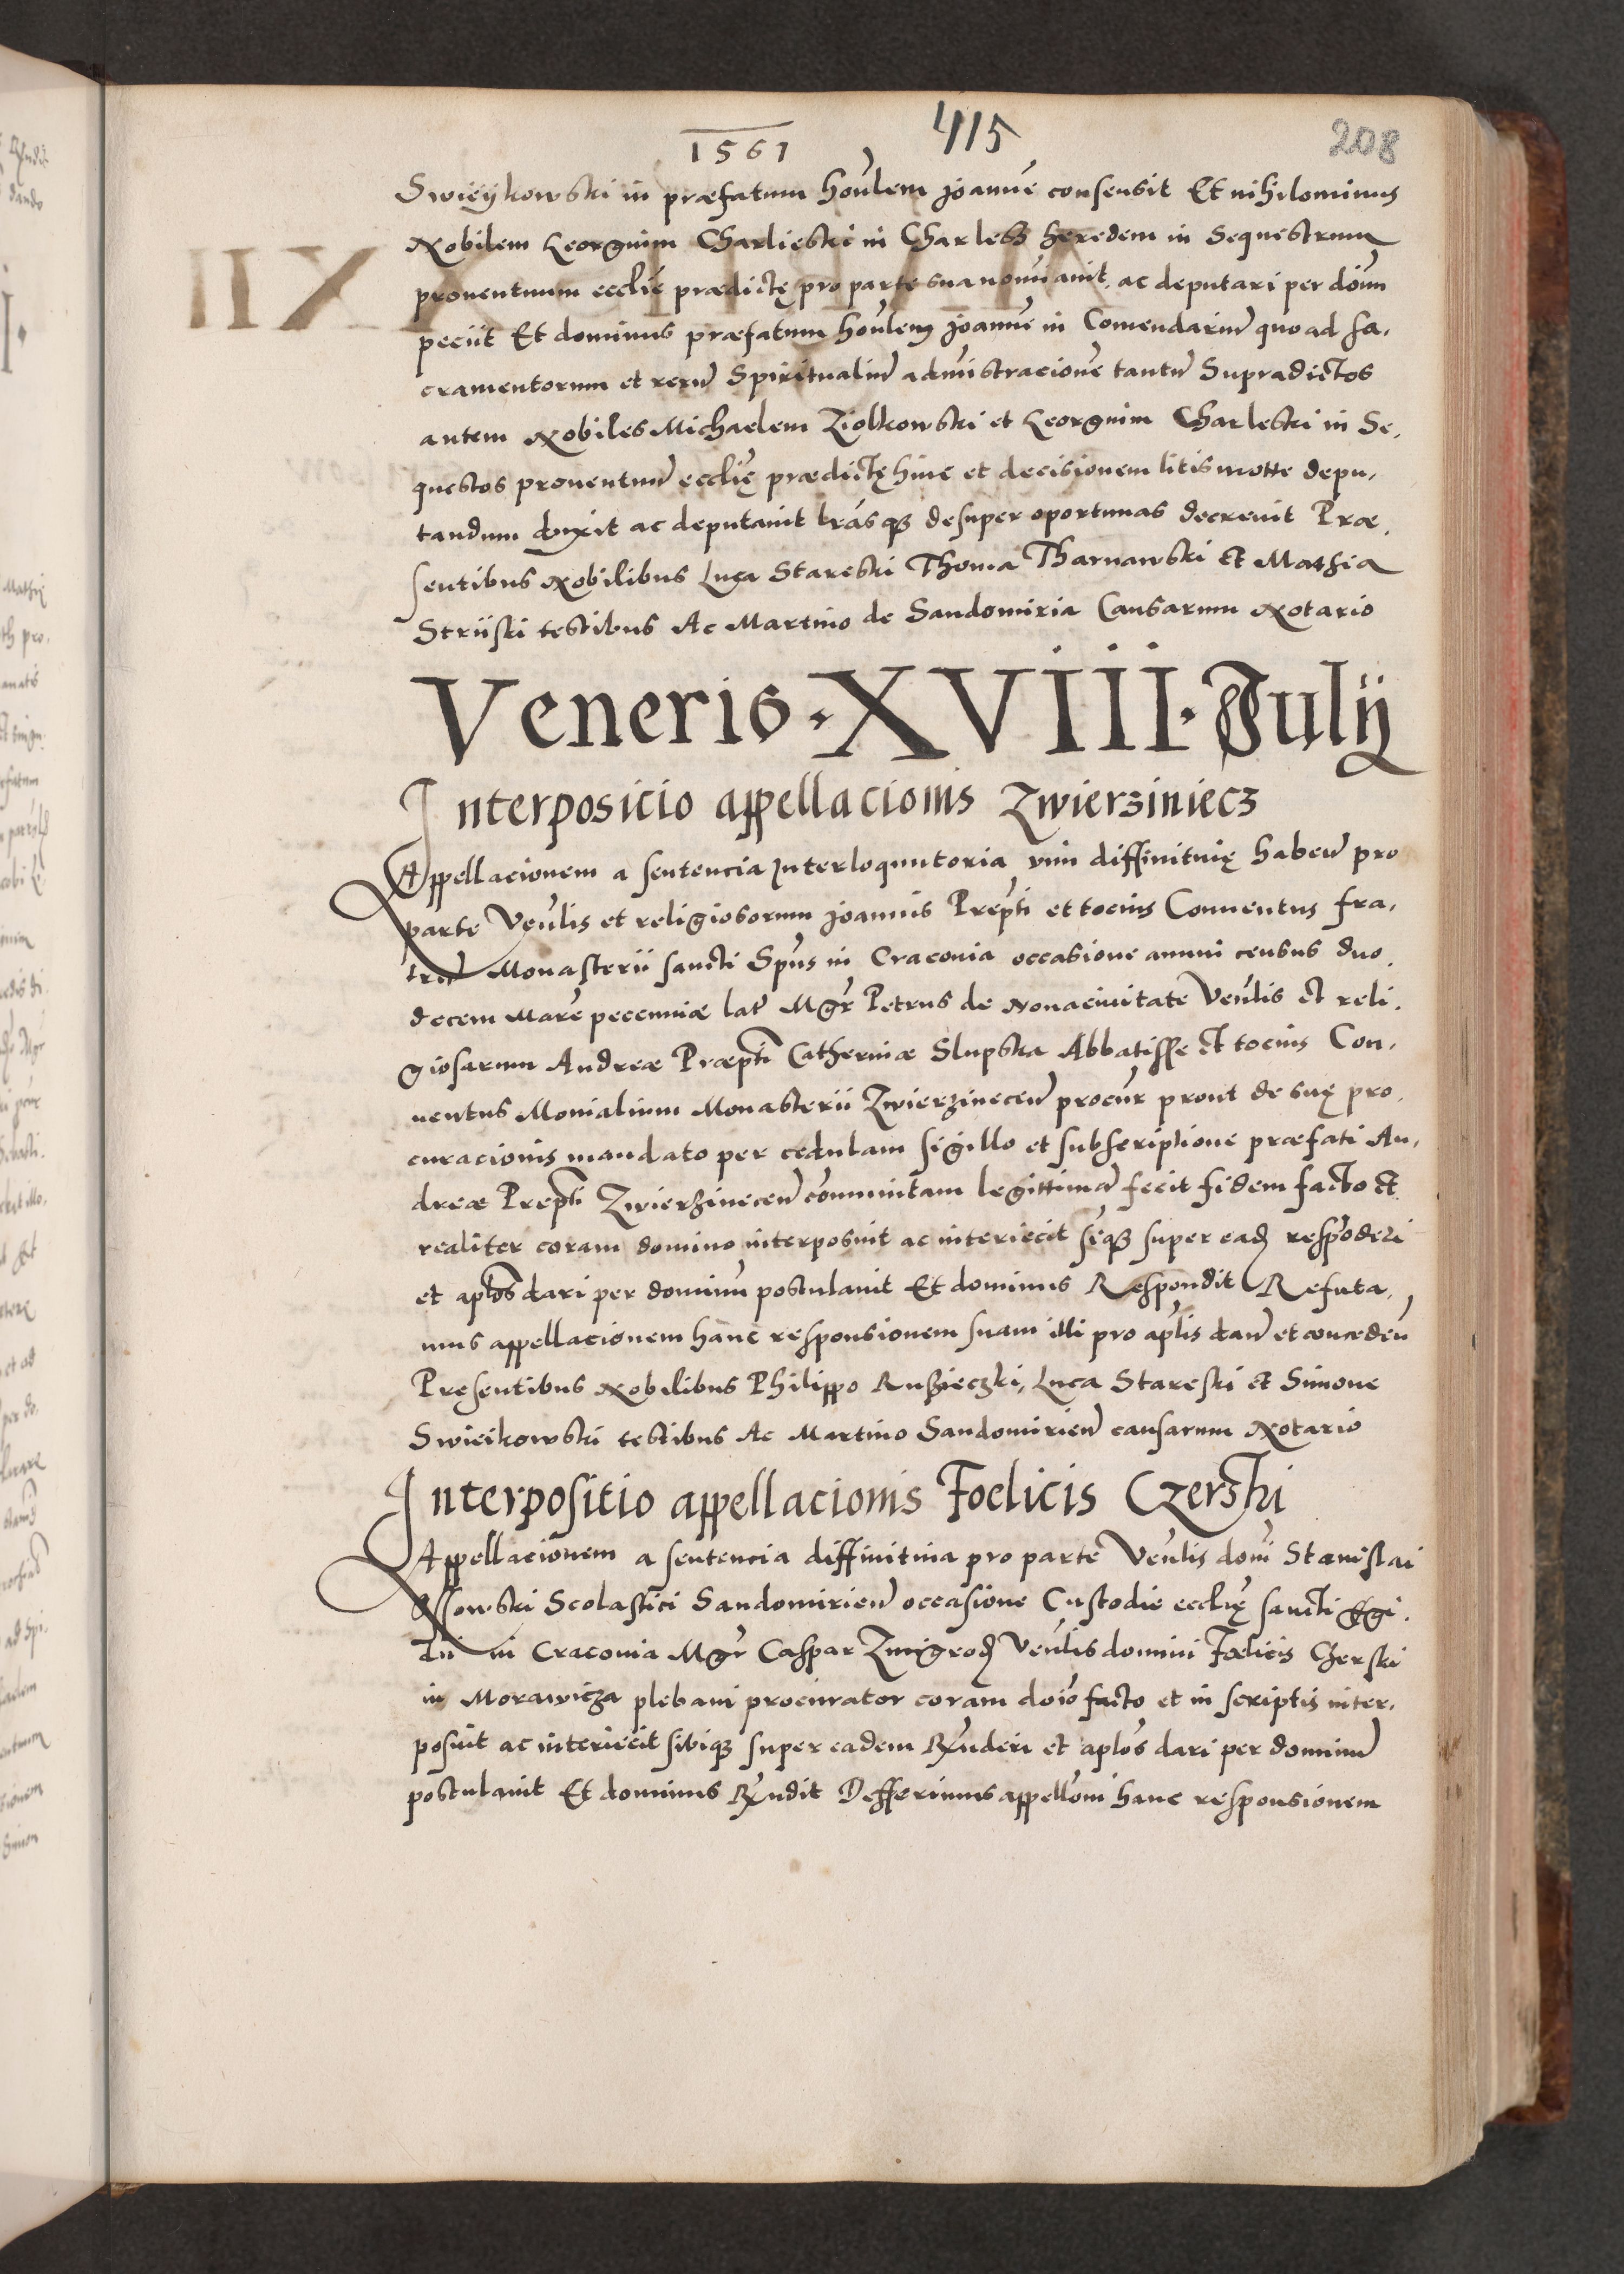 1561
415
208
Swieykowski in præfatum hon̄lem Joannē consensit Et nihilominus
Nobilem Georgium Charlieski in Charlesz heredem in Sequestrum
prouentuum eccliē prædictę pro parte sua noīauit. ac deputari per dōm̄
peciit Et dominus præfatum hon̄lem Joannē in Comendariū quo ad sa,
cramentorum et rerū Spiritualiū admīstracionē tantū Supradictos
autem Nobiles Michaelem Ziolkowski et Georgium Charleski in Se,
questos prouentuū ecclię prædictę hinc et decisionem litis motte depu,
tandum duxit ac deputauit lrās qȝ desuper oportunas decreuit Præ,
sentibus Nobilibus Luca Stareski Thoma Tharnawski et Mathia
Striiski testibus Ac Martino de Sandomiria Causarum Notario
Veneris · XVIIII · Julij
Interposicio appellacionis Zwierziniecz
Appellacionem a sentencia Interloquutoria vim diffinituię habeñ pro
parte Veūlis et religiosorum Joannis Prepti et tocius Conuentus fra,
trū Monasterii sancti Spūs in Craconia occasione annui census duo,
decem Marc̄ pecuniæ lat̄ Mgr̄ Petrus de Nouaciuitate Veūlis et reli,
giosarum Andreæ Præpti Catherinæ Slupska Abbatisse et tocius Con,
uentus Monialium Monasterii Zwierzineceñ procur̄ prout de suę pro,
curacionis mandato per cedulam sigillo et subscriptione præfati An,
dreæ Prepti Zwierzineceñ com̄unitam legittimā fecit fidem facto et
realiter coram domino interposuit ac interiecit sēqȝ super ead respōderi
et aplōs dari per dominū postulauit Et dominus Respondit Refuta,
mus appellacionem hanc responsionem suam illi pro aplīs dañ et concedeñ
Presentibus Nobilibus Philippo Ruszieczki, Luca Stareski et Simone
Swieikowski testibus Ac Martino Sandomirieñ causarum Notario
Interpositio appellacionis Foelicis Czerski
Appellacionem a sentencia diffinitiua pro parte Veūlis dom̄ Stanislai
Ossowski Scolastici Sandomirieñ occasione Custodie eccliȩ sancti Egi,
dii in Craconia Mgr̄ Caspar Zmigrod Veūlis domini Fœlicis Czerski
in Morawicza plebani procurator coram dn̄o facto et in scriptis inter,
posuit ac interiecit sibiqȝ super eadem Rn̄deri et aplōs dari per dominū
postulauit Et dominus Rn̄dit Defferimus appellōni hanc responsionem